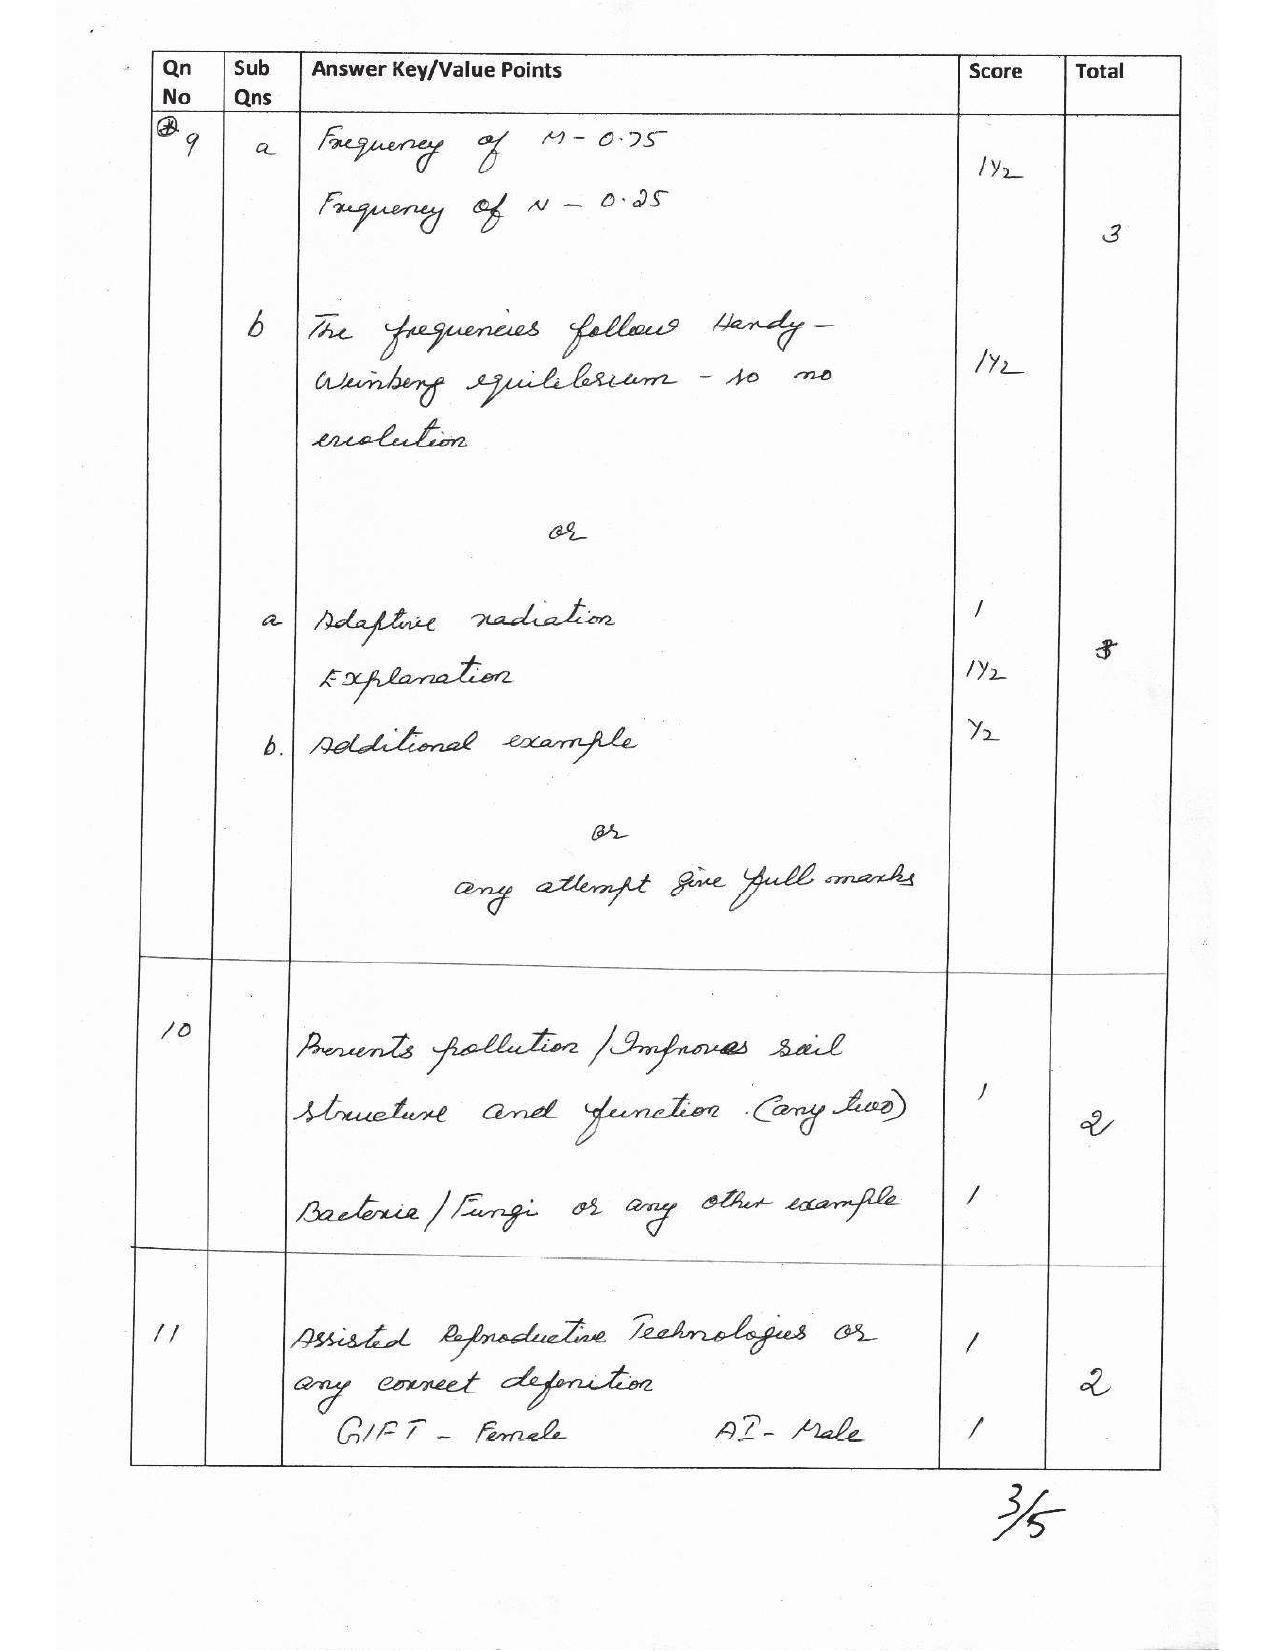 Qn No Sub Qns Answer Key/Value Points Score Total
9 a Frequency of M - 0.75 1½
Frequency of N - 0.25
3
b The frequencies follows Hardy -
Weinberg equilibrium - so no 1½
evolution
or
a Adaptive radiation 1
Explanation 1½
b. Additional example ½
or
any attempt give full marks
10 Prevents pollution / Improves soil
structure and function . (any two) 1
2
Bacteria / Fungi or any other example 1
11 Assisted Reproductive Technologies or 1
any correct defenition 2
GIFT - Female AI - Male 1
3/5